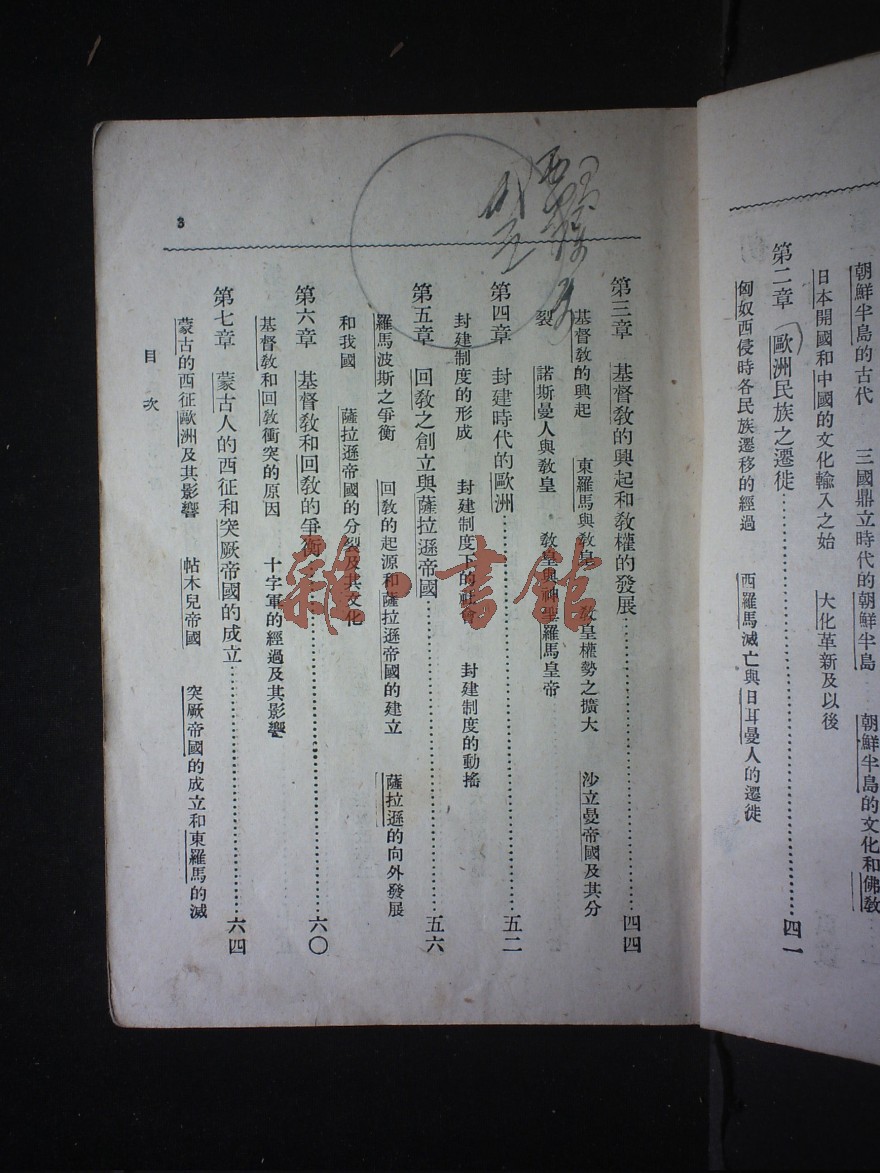 朝鮮半島的古代　三國鼎立時代的朝鮮半島　朝鮮半島的文化和佛敎
日本開國和中國的文化輸入之始　大化革新及以後
第二章　歐洲民族之遷徙……四一
匈奴西侵時各民族遷移的經過　西羅馬滅亡與日耳曼人的遷徙
第三章　基督敎的興起和敎權的發展……四四
基督敎的興起　東羅馬與敎皇　敎皇權勢之擴大　沙立曼帝國及其分
裂　諾斯曼人與敎皇　敎皇與神聖羅馬皇帝
第四章　封建時代的歐洲……五二
封建制度的形成　封建制度下的社會　封建制度的動搖
第五章　回敎之創立與薩拉遜帝國……五六
羅馬波斯之爭衡　回敎的起源和薩拉遜帝國的建立　薩拉遜的向外發展
和我國　薩拉遜帝國的分裂及其文化
第六章　基督敎和回敎的爭衡……六〇
基督敎和回敎衝突的原因　十字軍的經過及其影響
第七章　蒙古人的西征和突厥帝國的成立……六四
蒙古的西征歐洲及其影響　帖木兒帝國　突厥帝國的成立和東羅馬的滅
目次
3
雜·書館